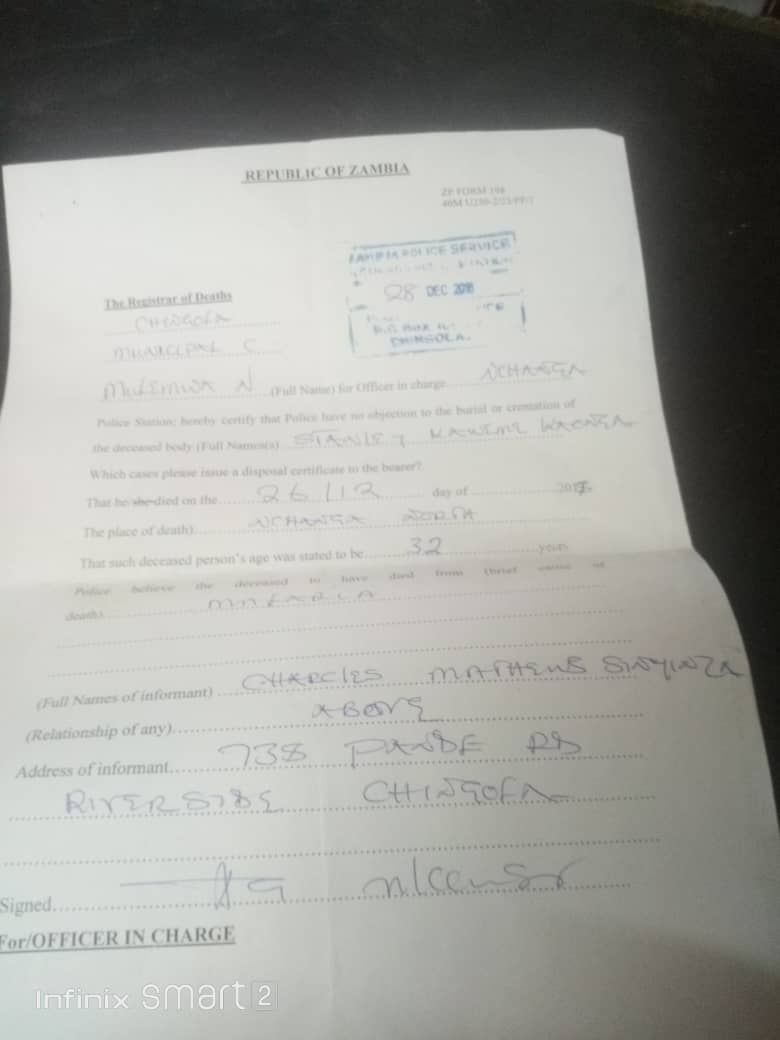 REPUBLIC OF ZAMBIA
ZP FORM 198
ZAMBIA POLICE SERVICE
28 DEC 2018
P.O. BOX
CHINGOLA.
The Registrar of Deaths
CHINGOLA
MUNICIPAL C
MULEMWA N (Full Name) for Officer in charge NCHANGA
Police Station; hereby certify that Police have no objection to the burial or cremation of
the deceased body (Full Names(s) STANLEY KAWEME
Which cases please issue a disposal certificate to the bearer?
That he/she died on the 26/12 day of 201
The place of death) NCHANGA NORTH
That such deceased person's age was stated to be 32 years
Police believe the deceased to have died from (brief cause of
death) MALARIA
(Full Names of informant) CHARLES MATHEWS SINYINZA
(Relationship of any) ABOVE
Address of informant 738 PANDE RD
RIVERSIDE CHINGOLA
Signed
For/OFFICER IN CHARGE
Infinix SMART 2